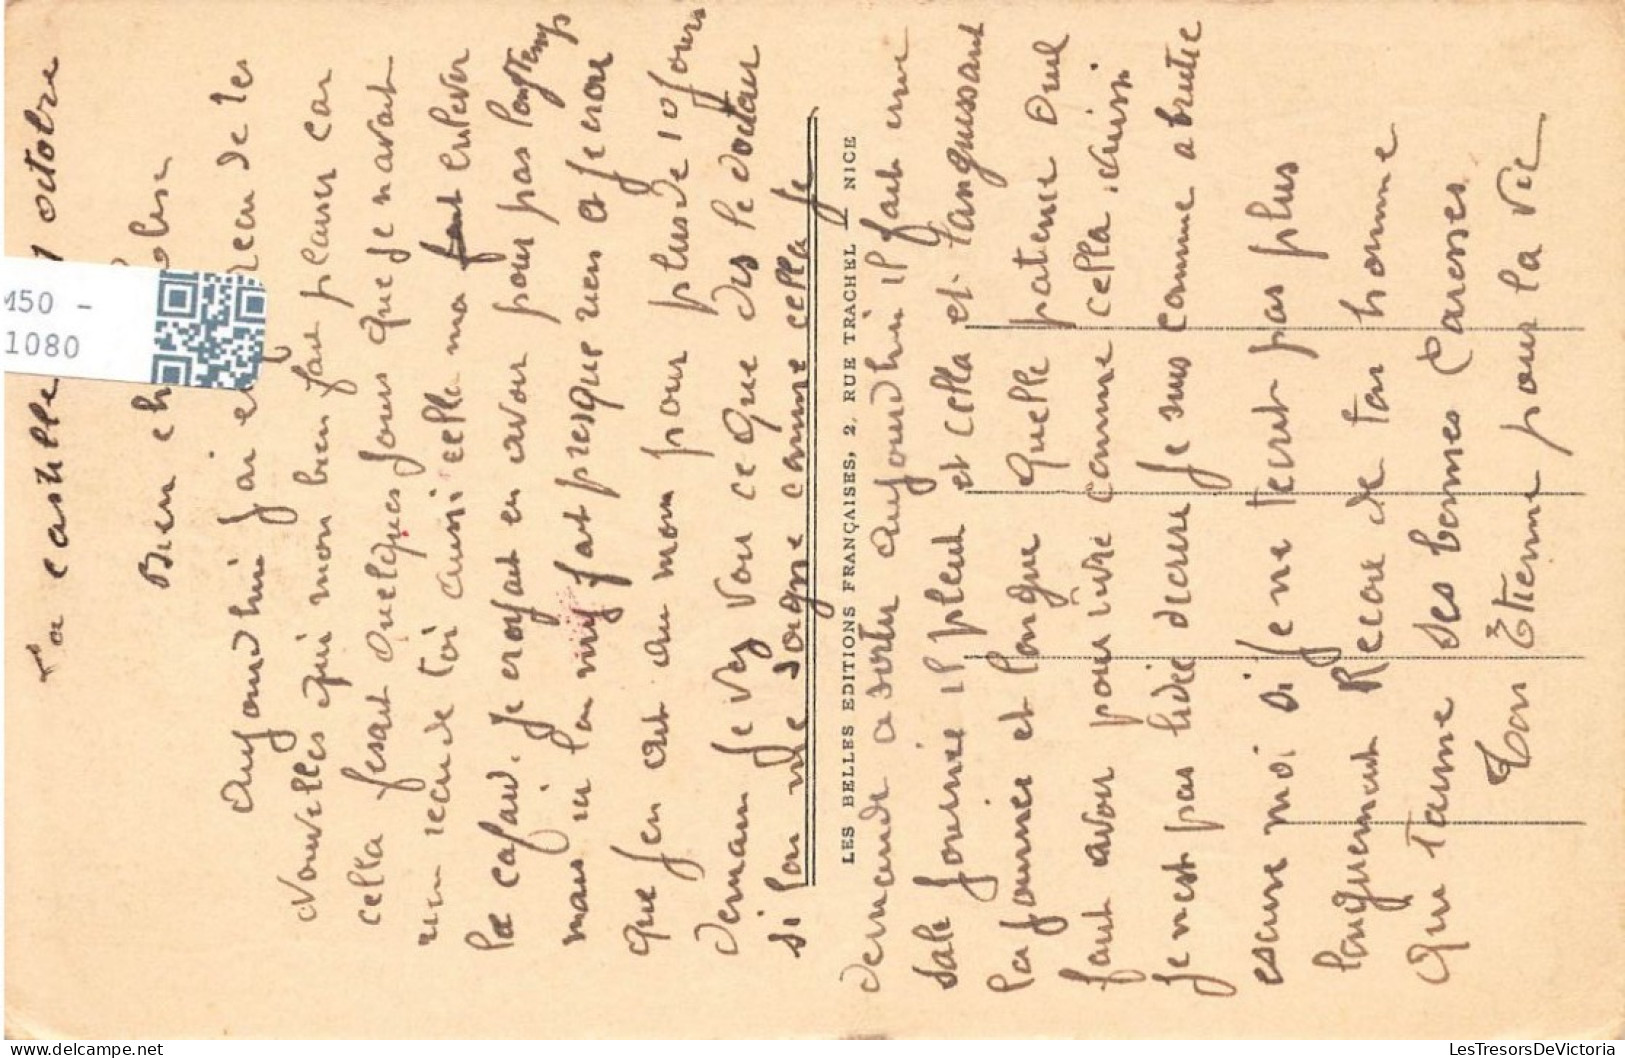 La castille octobre
Bien ch
Aujourdhui jai e de tes
Nouvelles qui mon bien fait plaisir car
cella fesait quelques jours que je navait
rien recu de toi aussi cella ma fait enlever
le cafard. Je croyait en avoir pour pas longtemps
mais ici lon my fait presque rien et je crois
que jen ait au moin pour plus de 10 jours
Demain je vez voir ce que dis le docteur
si lon me soigne comme cella je
LES BELLES EDITIONS FRANÇAISES, 2, RUE TRACHEL — NICE
demande a sortir aujourdhui il fait une
sale journée il pleut et cella et languissant
la journée et longue quelle patience quil
faut avoir pour ivre comme cella. aussi
je nest pas lidée decrire je suis comme abrutie
escuse moi si je ne tecrit pas plus
longuement Recoie de ton homme
qui taime des bonnes Caresses
Ton Etienne pour la vie
M50 -
1080
LesTresorsDeVictoria - https://www.delcampe.net
LesTresorsDeVictoria